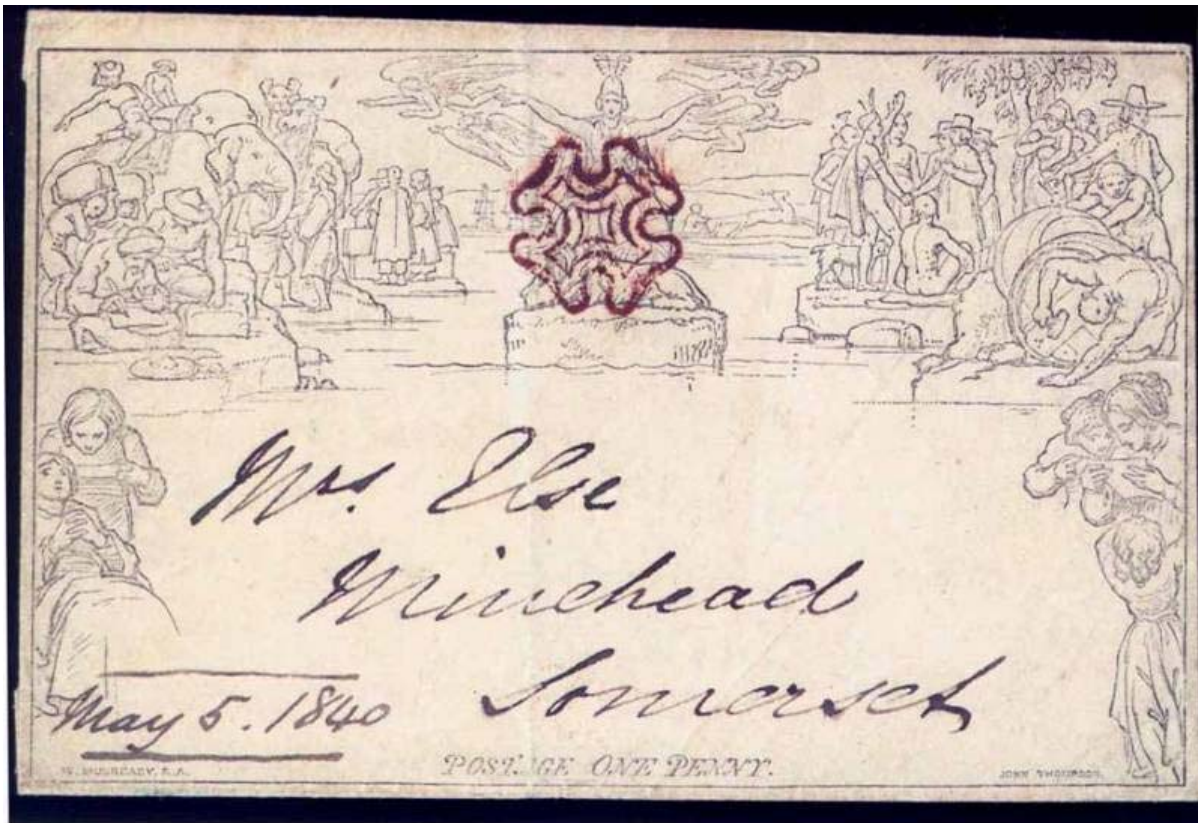 Mrs. Else
Minehead
Somerset
May 5. 1840
W. MULREADY, R.A.
POSTAGE ONE PENNY.
JOHN THOMPSON.